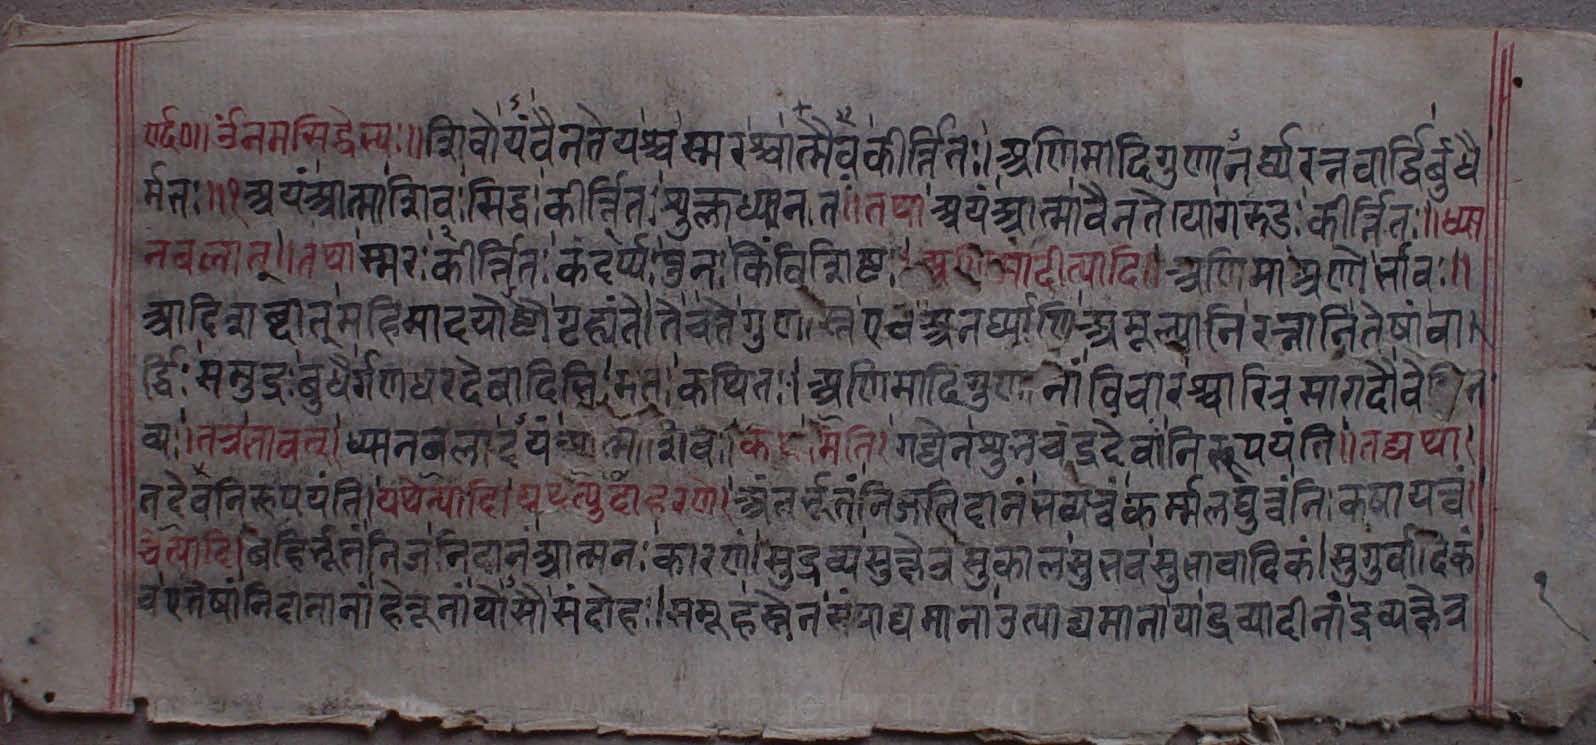 ॥ र्ठ नमः सिद्धेभ्यः॥ शिवोयं वैनतेयश्च स्मरश्चात्मैव कीर्त्तितः। अणिमादिगुणानर्घ्यरत्नवार्द्धिर्बुधै
र्मतः॥१ अयं आत्मा शिवः सिद्धः कीर्त्तितः शुक्लध्यानतः॥ तथा अयं आत्मा वैनतेयो गरुडः कीर्त्तितः॥ ध्या
नबलात्॥ तथा स्मरः कीर्त्तितः कंदर्प्पः पुनः किं विशिष्टः। अणिमादीत्यादि॥ अणिमा अणोर्भावः॥
आदिशब्दात् महिमादयो गृह्यंते। ते च ते गुणास्त एव अनर्घ्याणि अमूल्यानि रत्नानि तेषां वा
र्द्धिः समुद्रः बुधैर्गणधरदेवादिभिः मतः कथितः। अणिमादिगुणानां विचारश्चारित्रसारादौ वेदित
व्यः। तत्र तावत् ध्यानबलादयं आत्मा शिवः कथमिति। गद्येन शुभचंद्रदेवा निरूपयंति॥ तद्यथा।
तदेव निरूपयंति। यथेत्यादि। यथेत्युदाहरणे। अंतर्भूतं निजनिदानं भव्यत्वं कर्म्मलघुत्वं निःकषायत्वं
चेत्यादि। बहिर्भूतं निजनिदानं आत्मनः कारणं। सुद्रव्यसुक्षेत्रसुकालसुभवसुभावादिकं। सुगुर्वादिकं
च एतेषां निदानानां हेतूनां योसौ संदोहः। समूहस्तेन संपाद्यमाना उत्पाद्यमाना या द्रव्यादीनां द्रव्यक्षेत्र
१